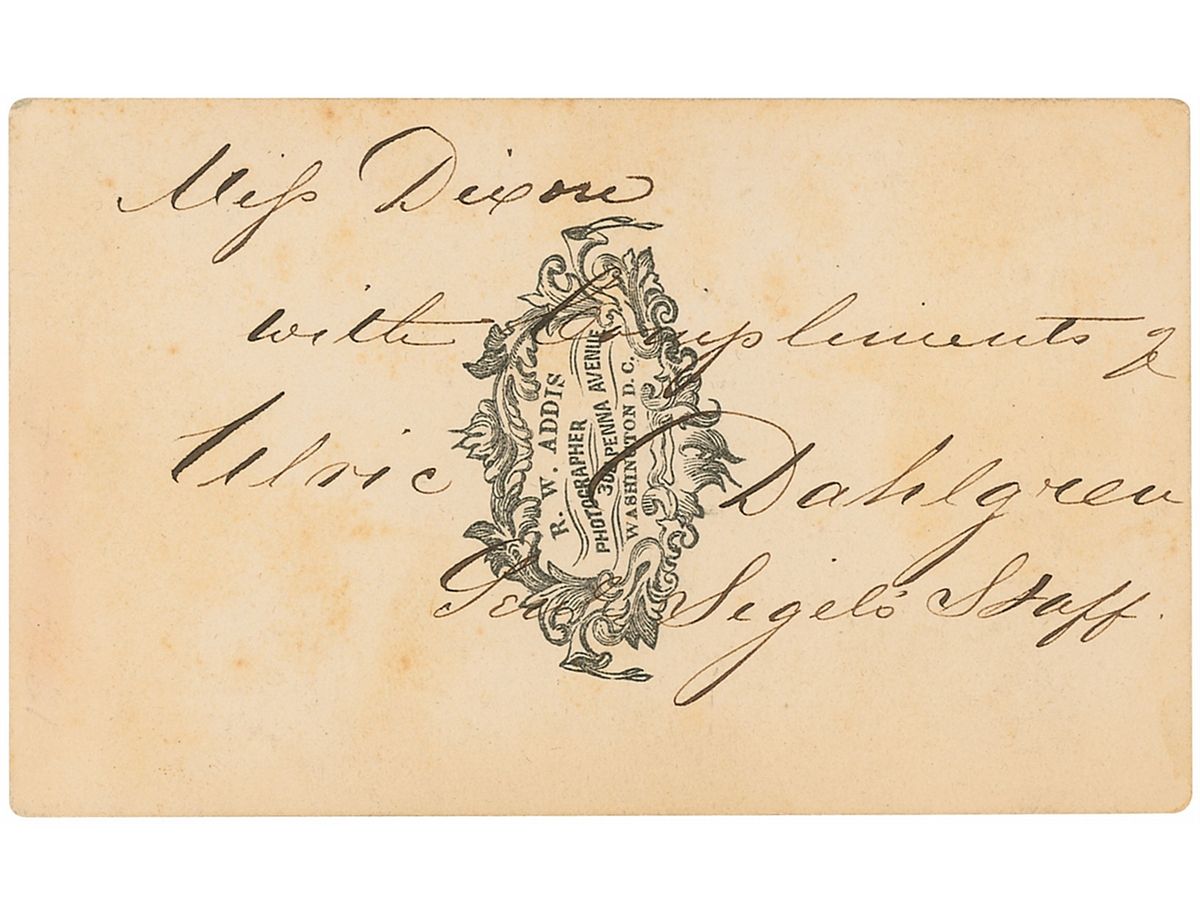 Miss Dixon
with Compliments of
Ulric Dahlgren
Genl Sigel's Staff.
R. W. ADDIS
PHOTOGRAPHER
308 PENNA AVENUE
WASHINGTON D.C.